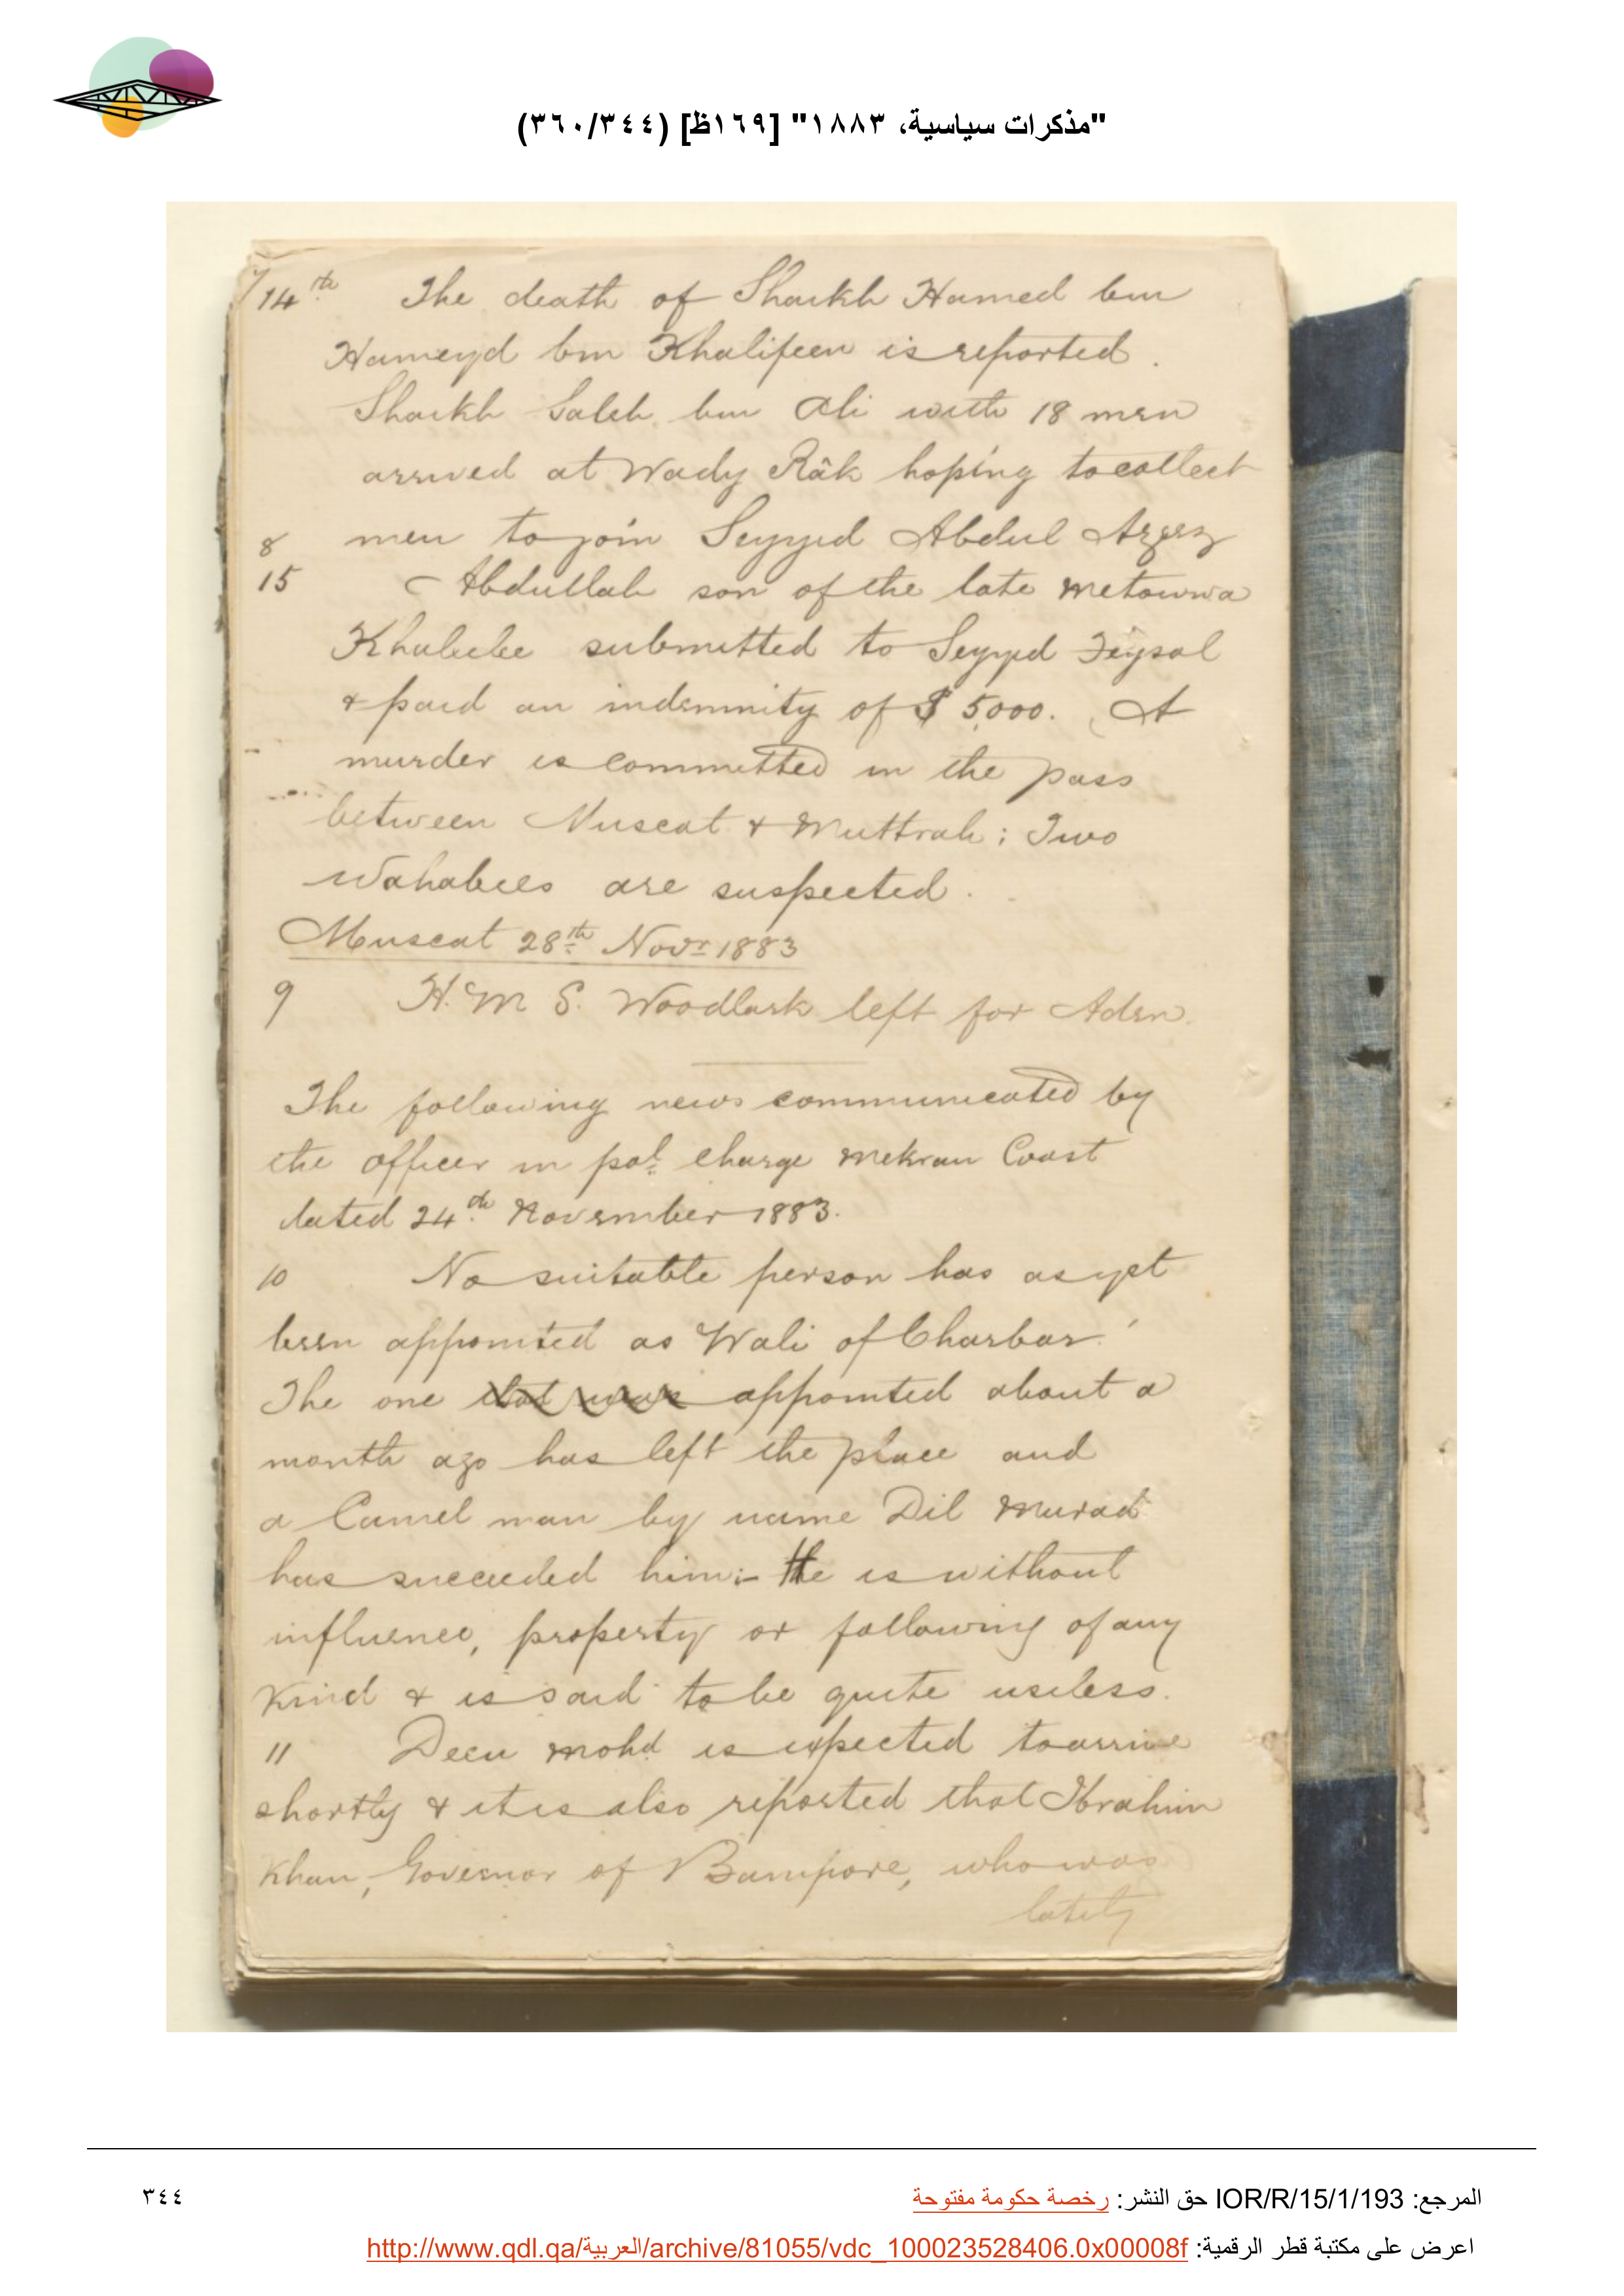 "مذكرات سياسية، ١٨٨٣" [١٦٩ظ] (٣٦٠/٣٤٤)
7/14th The death of Shaikh Hamed bin
Hameyd bin Khalifeen is reported.
Shaikh Saleh bin Ali with 18 men
arrived at Wady Râk hoping to collect
8 men to join Seyyid Abdul Azeez
15 Abdullah son of the late Metowwa
Khalile submitted to Seyyid Feysal
& paid an indemnity of $ 5,000. A
murder is committed in the pass
between Muscat & Muttrah; Two
Wahabees are suspected.
Muscat 28th Novr 1883
9 H. M S. Woodlark left for Aden.
The following news communicated by
the officer in pol: charge Mekran Coast
dated 24th November 1883.
10 No suitable person has as yet
been appointed as Wali of Charbar.
The one that was appointed about a
month ago has left the place and
a Camel man by name Dil Murad
has succeeded him:- He is without
influence, property or following of any
kind & is said to be quite useless.
11 Deen Mohd is expected to arrive
shortly & it is also reported that Ibrahim
Khan, Governor of Bampore, who was
lately
المرجع: IOR/R/15/1/193 حق النشر: رخصة حكومة مفتوحة
٣٤٤
اعرض على مكتبة قطر الرقمية: http://www.qdl.qa/العربية/archive/81055/vdc_100023528406.0x00008f